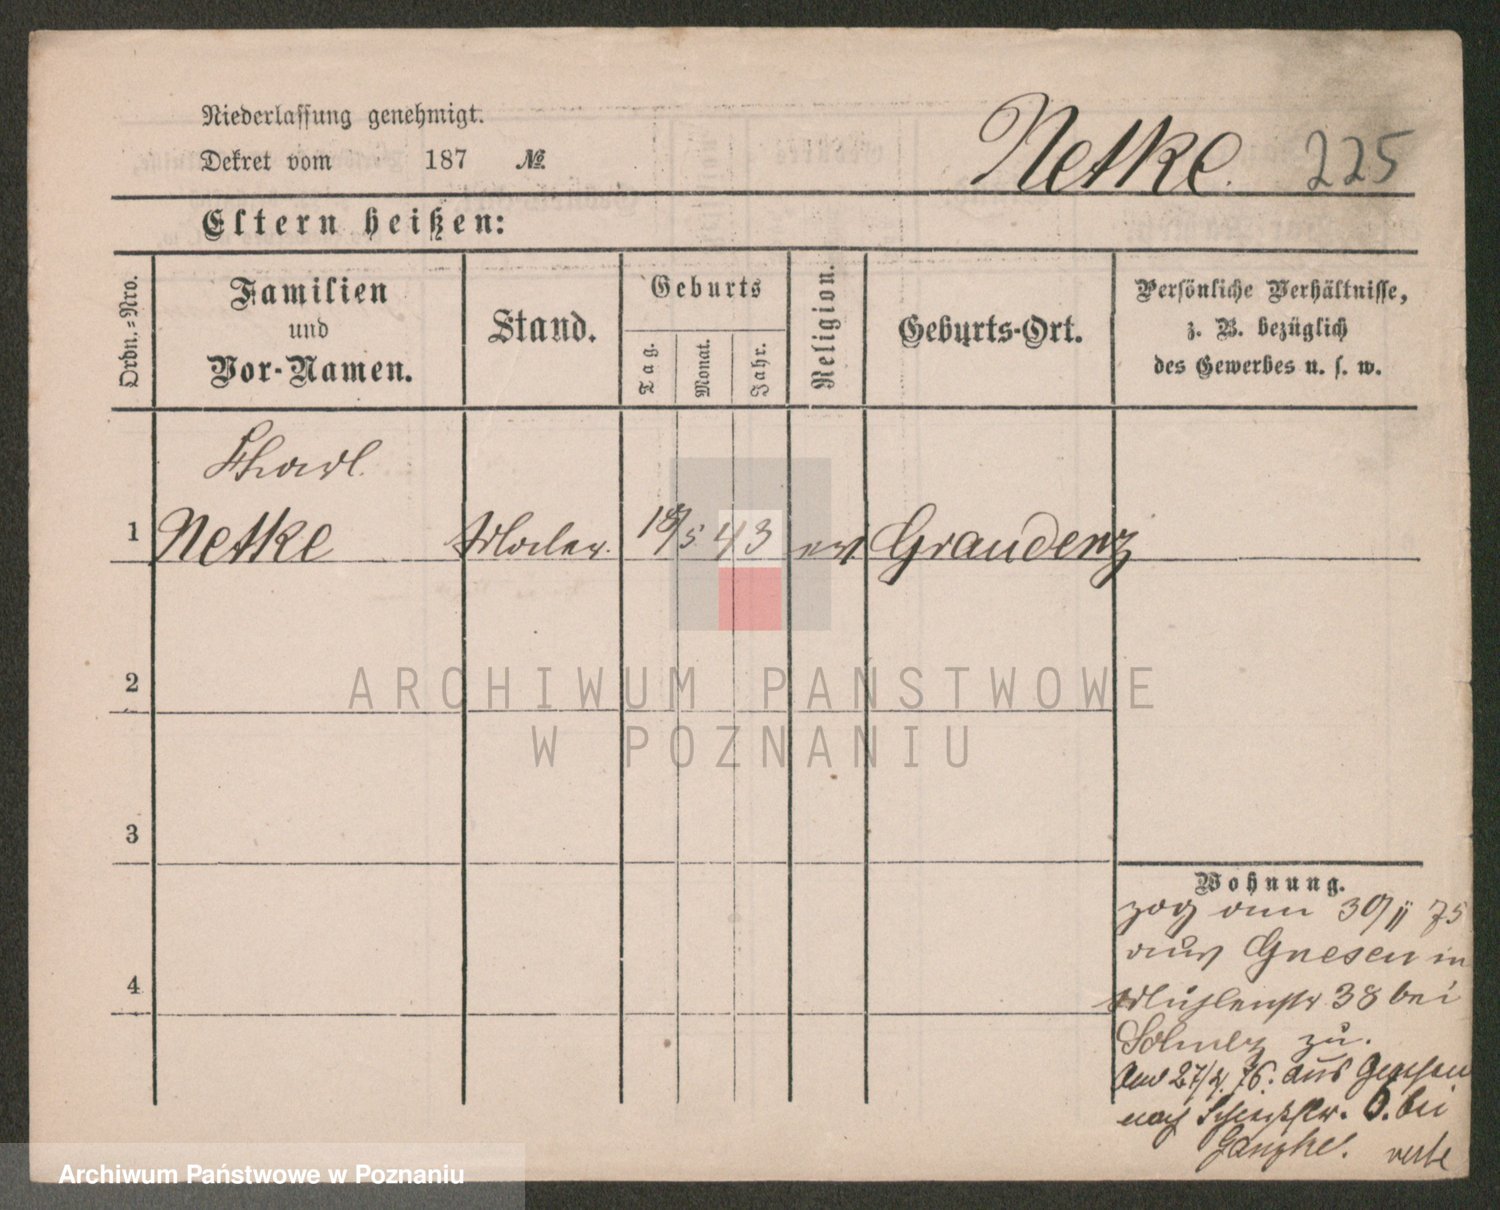 Niederlassung genehmigt.
Dekret vom 187 №
Netke. 225
Eltern heißen:
Ordn.=Nro.
Familien
und
Vor-Namen.
Stand.
Geburts
Tag.
Monat.
Jahr.
Religion.
Geburts-Ort.
Persönliche Verhältnisse,
z. B. bezüglich
des Gewerbes u. s. w.
1 Netke Maler. 18/5 43 ev Graudenz
2
3
4
Wohnung.
zog am 30/11 75
aus Gnesen in
Mühlenstr 38 bei
zu.
27/4. 76. aus Gnesen
nach 6. bei
ARCHIWUM PAŃSTWOWE
W POZNANIU
Archiwum Państwowe w Poznaniu